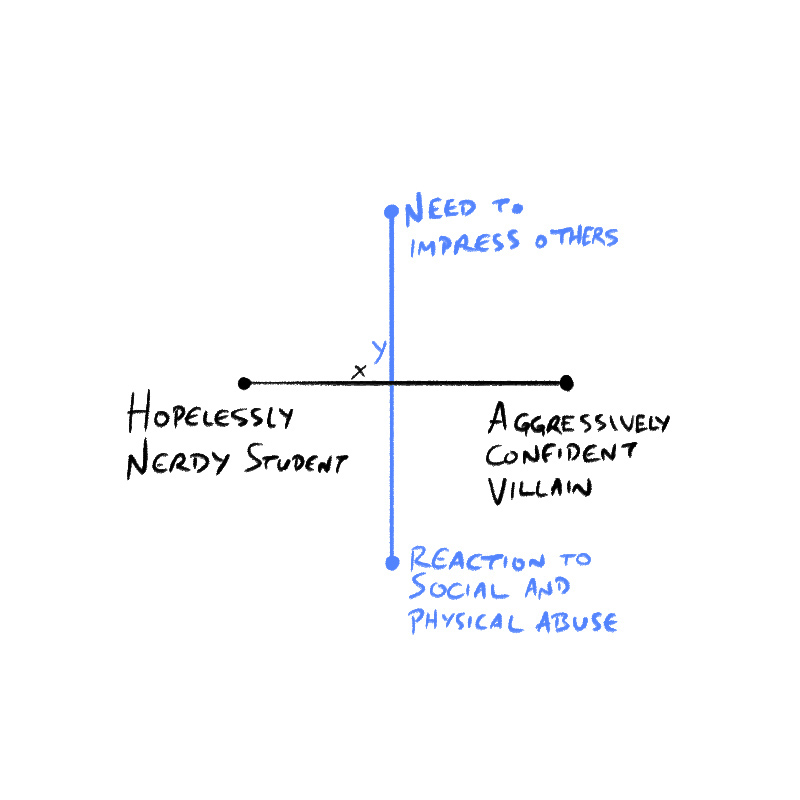 NEED TO
IMPRESS OTHERS
Y
X
HOPELESSLY
NERDY STUDENT
AGGRESSIVELY
CONFIDENT
VILLAIN
REACTION TO
SOCIAL AND
PHYSICAL ABUSE